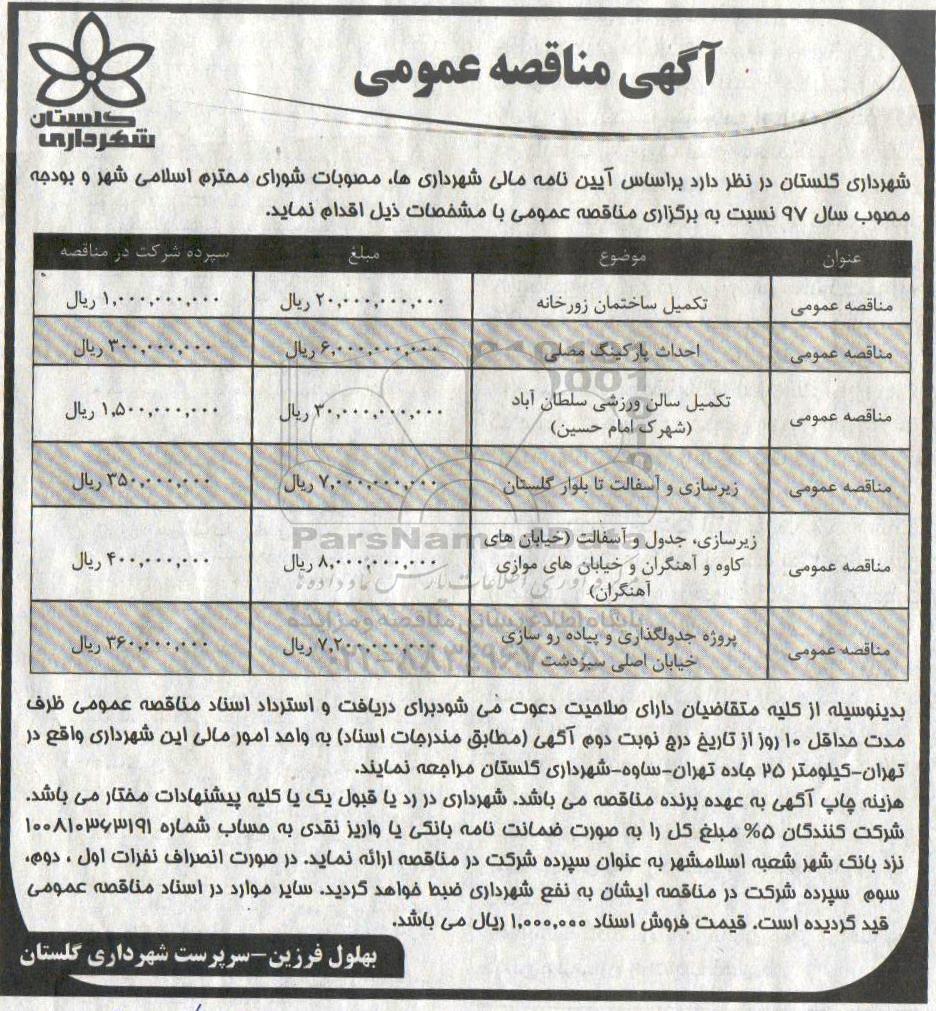 آگهی مناقصه عمومی
گلستان
شهرداری
شهرداری گلستان در نظر دارد براساس آیین نامه مالی شهرداری ها، مصوبات شورای محترم اسلامی شهر و بودجه
مصوب سال ۹۷ نسبت به برگزاری مناقصه عمومی با مشخصات ذیل اقدام نماید.
عنوان موضوع مبلغ سپرده شرکت در مناقصه
مناقصه عمومی تکمیل ساختمان زورخانه ۲۰,۰۰۰,۰۰۰,۰۰۰ ریال ۱,۰۰۰,۰۰۰,۰۰۰ ریال
مناقصه عمومی احداث پارکینگ مصلی ۶,۰۰۰,۰۰۰,۰۰۰ ریال ۳۰۰,۰۰۰,۰۰۰ ریال
مناقصه عمومی تکمیل سالن ورزشی سلطان آباد ۳۰,۰۰۰,۰۰۰,۰۰۰ ریال ۱,۵۰۰,۰۰۰,۰۰۰ ریال
(شهرک امام حسین)
مناقصه عمومی زیرسازی و آسفالت تا بلوار گلستان ۷,۰۰۰,۰۰۰,۰۰۰ ریال ۳۵۰,۰۰۰,۰۰۰ ریال
زیرسازی، جدول و آسفالت (خیابان های
مناقصه عمومی کاوه و آهنگران و خیابان های موازی ۸,۰۰۰,۰۰۰,۰۰۰ ریال ۴۰۰,۰۰۰,۰۰۰ ریال
آهنگران)
مناقصه عمومی پروژه جدولگذاری و پیاده رو سازی ۷,۲۰۰,۰۰۰,۰۰۰ ریال ۳۶۰,۰۰۰,۰۰۰ ریال
خیابان اصلی سبزدشت
ParsNamadData
پایگاه اطلاع رسانی مناقصه و مزایده
بدینوسیله از کلیه متقاضیان دارای صلاحیت دعوت می شودبرای دریافت و استرداد اسناد مناقصه عمومی ظرف
مدت حداقل ۱۰ روز از تاریخ درج نوبت دوم آگهی (مطابق مندرجات اسناد) به واحد امور مالی این شهرداری واقع در
تهران-کیلومتر ۲۵ جاده تهران-ساوه-شهرداری گلستان مراجعه نمایند.
هزینه چاپ آگهی به عهده برنده مناقصه می باشد. شهرداری در رد یا قبول یک یا کلیه پیشنهادات مختار می باشد.
شرکت کنندگان ۵% مبلغ کل را به صورت ضمانت نامه بانکی یا واریز نقدی به حساب شماره ۱۰۰۸۱۰۳۶۳۱۹۱
نزد بانک شهر شعبه اسلامشهر به عنوان سپرده شرکت در مناقصه ارائه نماید. در صورت انصراف نفرات اول ، دوم،
سوم سپرده شرکت در مناقصه ایشان به نفع شهرداری ضبط خواهد گردید. سایر موارد در اسناد مناقصه عمومی
قید گردیده است. قیمت فروش اسناد ۱,۰۰۰,۰۰۰ ریال می باشد.
بهلول فرزین-سرپرست شهرداری گلستان